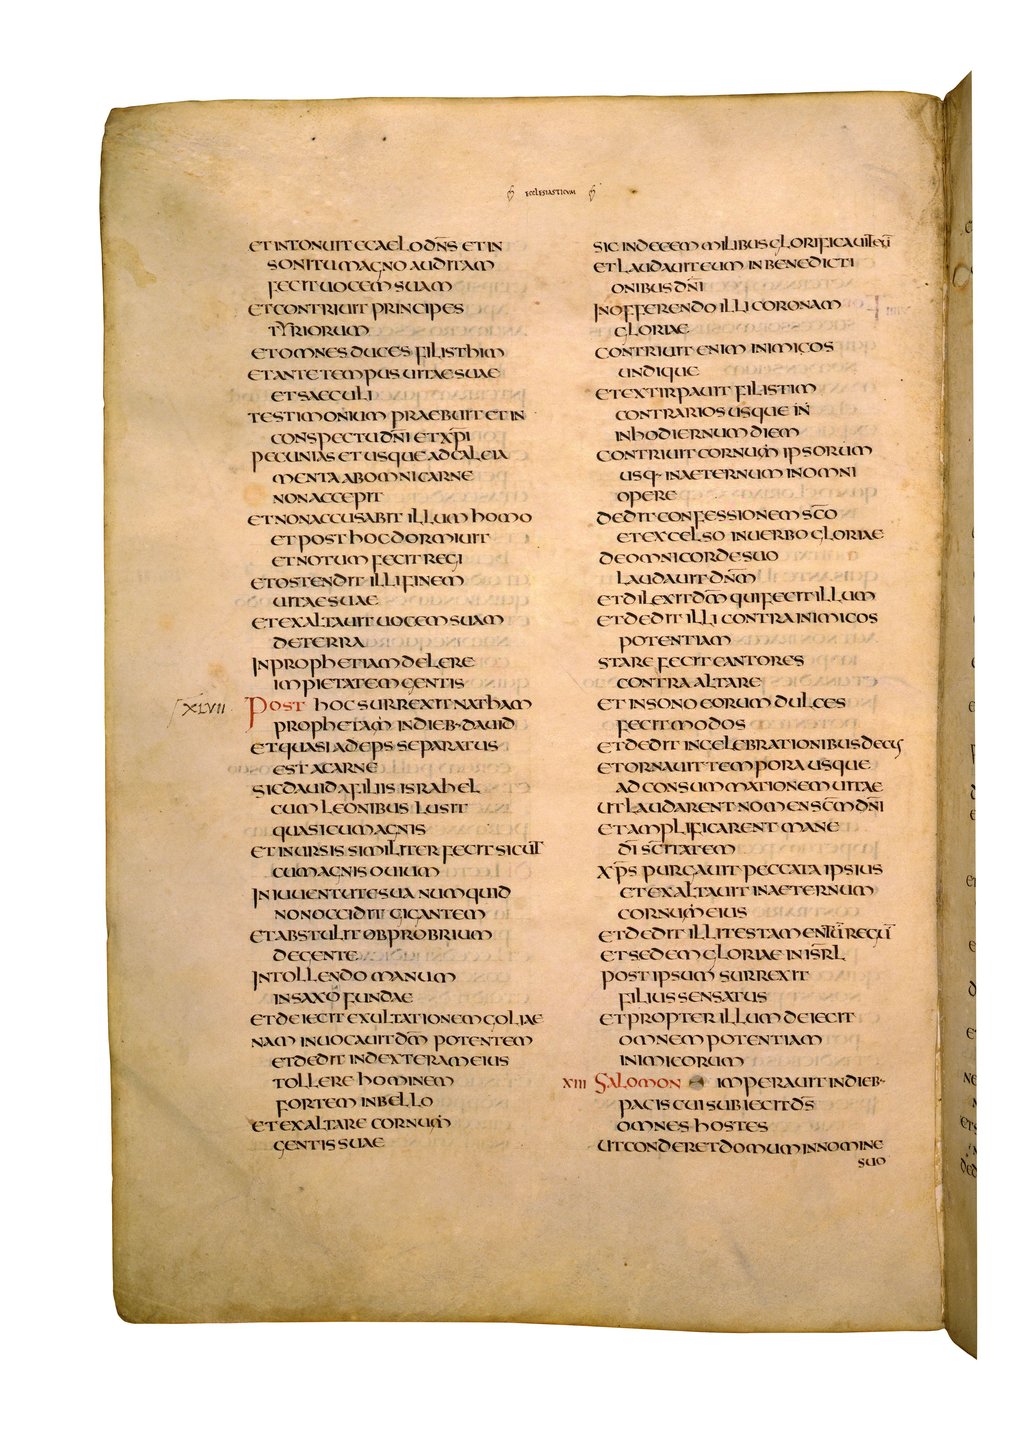 ECCLESIASTICUM
ET INTONUIT E CAELO DN̄S ET IN
SONITU MAGNO AUDITAM
FECIT UOCEM SUAM
ET CONTRIUIT PRINCIPES
TYRIORUM
ET OMNES DUCES FILISTHIM
ET ANTE TEMPUS UITAE SUAE
ET SAECULI
TESTIMONIUM PRAEBUIT ET IN
CONSPECTU DN̄I ET XP̄I
PECUNIAS ET USQUE AD CALCIA
MENTA AB OMNI CARNE
NON ACCEPIT
ET NON ACCUSABIT ILLUM HOMO
ET POST HOC DORMIUIT
ET NOTUM FECIT REGI
ET OSTENDIT ILLI FINEM
UITAE SUAE
ET EXALTAUIT UOCEM SUAM
DE TERRA
IN PROPHETIAM DELERE
IMPIETATEM GENTIS
XLVII POST HOC SURREXIT NATHAM
PROPHETAM IN DIEB· DAUID
ET QUASI ADEPS SEPARATUS
EST A CARNE
SIC DAUID A FILIIS ISRAHEL
CUM LEONIBUS LUSIT
QUASI CUM AGNIS
ET IN URSIS SIMILITER FECIT SICUT
CUM AGNIS OUIUM
IN IUUENTUTE SUA NUMQUID
NON OCCIDIT GIGANTEM
ET ABSTULIT OBPROBRIUM
DE GENTE
IN TOLLENDO MANUM
IN SAXO FUNDAE
ET DEIECIT EXULTATIONEM GOLIAE
NAM INUOCAUIT DM̄ POTENTEM
ET DEDIT IN DEXTERAM EIUS
TOLLERE HOMINEM
FORTEM IN BELLO
ET EXALTARE CORNUM
GENTIS SUAE
SIC IN DECEM MILIBUS GLORIFICAUIT EŪ
ET LAUDAUIT EUM IN BENEDICTI
ONIBUS DN̄I
IN OFFERENDO ILLI CORONAM
GLORIAE
CONTRIUIT ENIM INIMICOS
UNDIQUE
ET EXTIRPAUIT FILISTIM
CONTRARIOS USQUE IN
IN HODIERNUM DIEM
CONTRIUIT CORNUM IPSORUM
USQ· IN AETERNUM IN OMNI
OPERE
DEDIT CONFESSIONEM SC̄O
ET EXCELSO IN UERBO GLORIAE
DE OMNI CORDE SUO
LAUDAUIT DN̄M
ET DILEXIT DM̄ QUI FECIT ILLUM
ET DEDIT ILLI CONTRA INIMICOS
POTENTIAM
STARE FECIT CANTORES
CONTRA ALTARE
ET IN SONO EORUM DULCES
FECIT MODOS
ET DEDIT IN CELEBRATIONIBUS DECUS
ET ORNAUIT TEMPORA USQUE
AD CONSUMMATIONEM UITAE
UT LAUDARENT NOMEN SC̄M DN̄I
ET AMPLIFICARENT MANE
DĪ SC̄ITATEM
XP̄S PURGAUIT PECCATA IPSIUS
ET EXALTAUIT IN AETERNUM
CORNUM EIUS
ET DEDIT ILLI TESTAMENTŪ REGŪ
ET SEDEM GLORIAE IN ISR̄L
POST IPSUM SURREXIT
FILIUS SENSATUS
ET PROPTER ILLUM DEIECIT
OMNEM POTENTIAM
INIMICORUM
XIII SALOMON IMPERAUIT IN DIEB·
PACIS CUI SUBIECIT DS̄
OMNES HOSTES
UT CONDERET DOMUM IN NOMINE
SUO